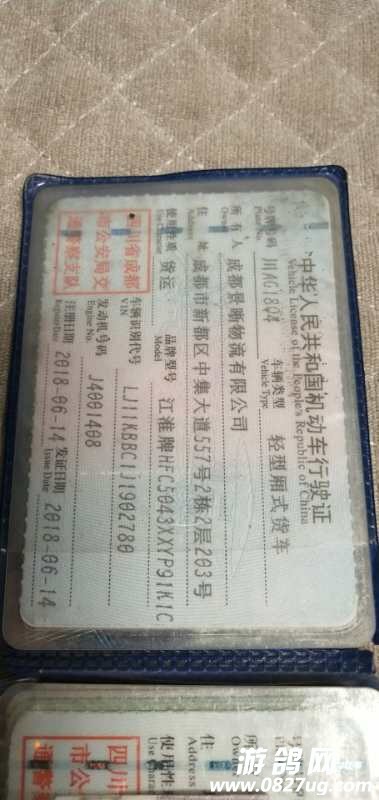 中华人民共和国机动车行驶证
Vehicle License of the People's Republic of China
号牌号码 川AG1804 车辆类型 轻型厢式货车
Plate No. Vehicle Type
所有人 成都景晰物流有限公司
Owner
住址 成都市新都区中集大道557号2栋2层203号
Address
使用性质 货运 品牌型号 江淮牌HFC5043XXYP91K1C
Use Character Model
四川省成都
市公安局交
通警察支队
车辆识别代号 LJ11KBBC1J1902780
VIN
发动机号码 J4001408
Engine No.
注册日期 2018-06-14 发证日期 2018-06-14
Register Date Issue Date
Owner
住
Address
使用性
Use Chara
四川
市公
通警
游鸽网
www.0827ug.com